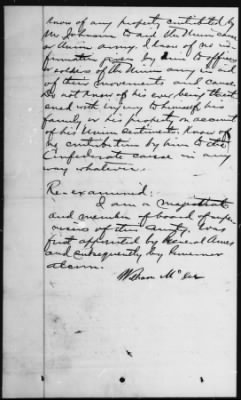 know of any property contributed by
Mr Johnson to aid the Union cause
or Union army. I know of no in-
formation given by him to officers
or soldiers of the Union army in aid
of their movements and cause.
Do not know of his ever being threat-
ened with injury to himself his
family or his property on account
of his Union sentiments. Know of
no contribution by him to the
Confederate cause in any
way whatever.
Re-examined:
I am a magistrate
and member of board of super-
visors of this County. Was
first appointed by General Ames
and subsequently by Governor
Alcorn.